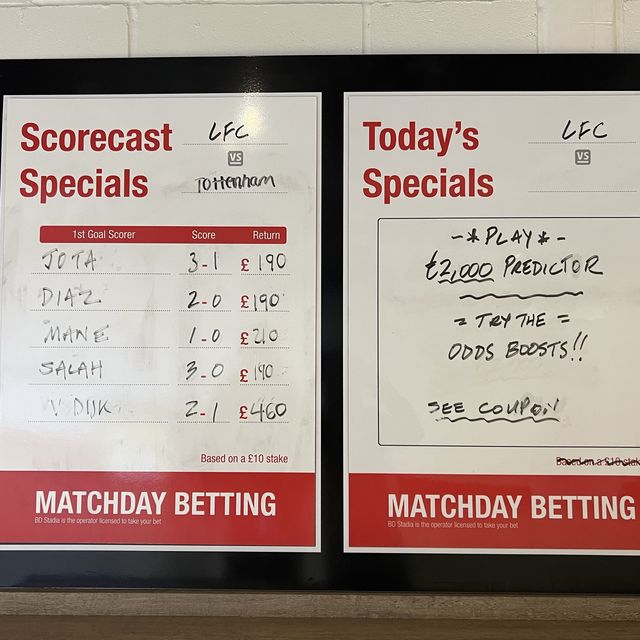 Scorecast
Specials
LFC
VS
Tottenham
1st Goal Scorer Score Return
JOTA 3-1 £190
DIAZ 2-0 £190
MANE 1-0 £210
SALAH 3-0 £190
V. DIJK 2-1 £460
Based on a £10 stake
MATCHDAY BETTING
BD Stadia is the operator licensed to take your bet
Today's
Specials
LFC
VS
-*PLAY*-
£2,000 PREDICTOR
= TRY THE =
ODDS BOOSTS!!
SEE COUPON
Based on a £10 stak
MATCHDAY BETTING
BD Stadia is the operator licensed to take your bet